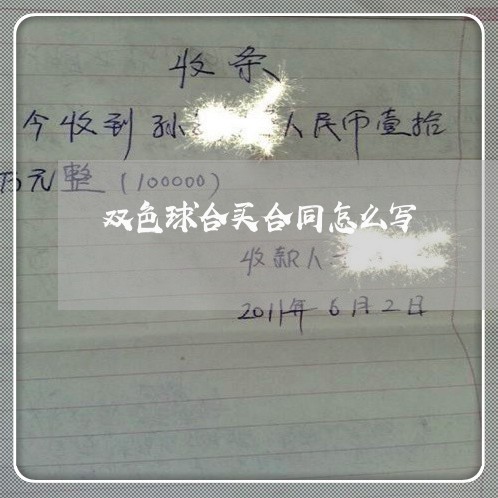 收条
今收到孙 人民币壹拾
万元整（100000）
双色球合买合同怎么写
收款人
2011年6月2日